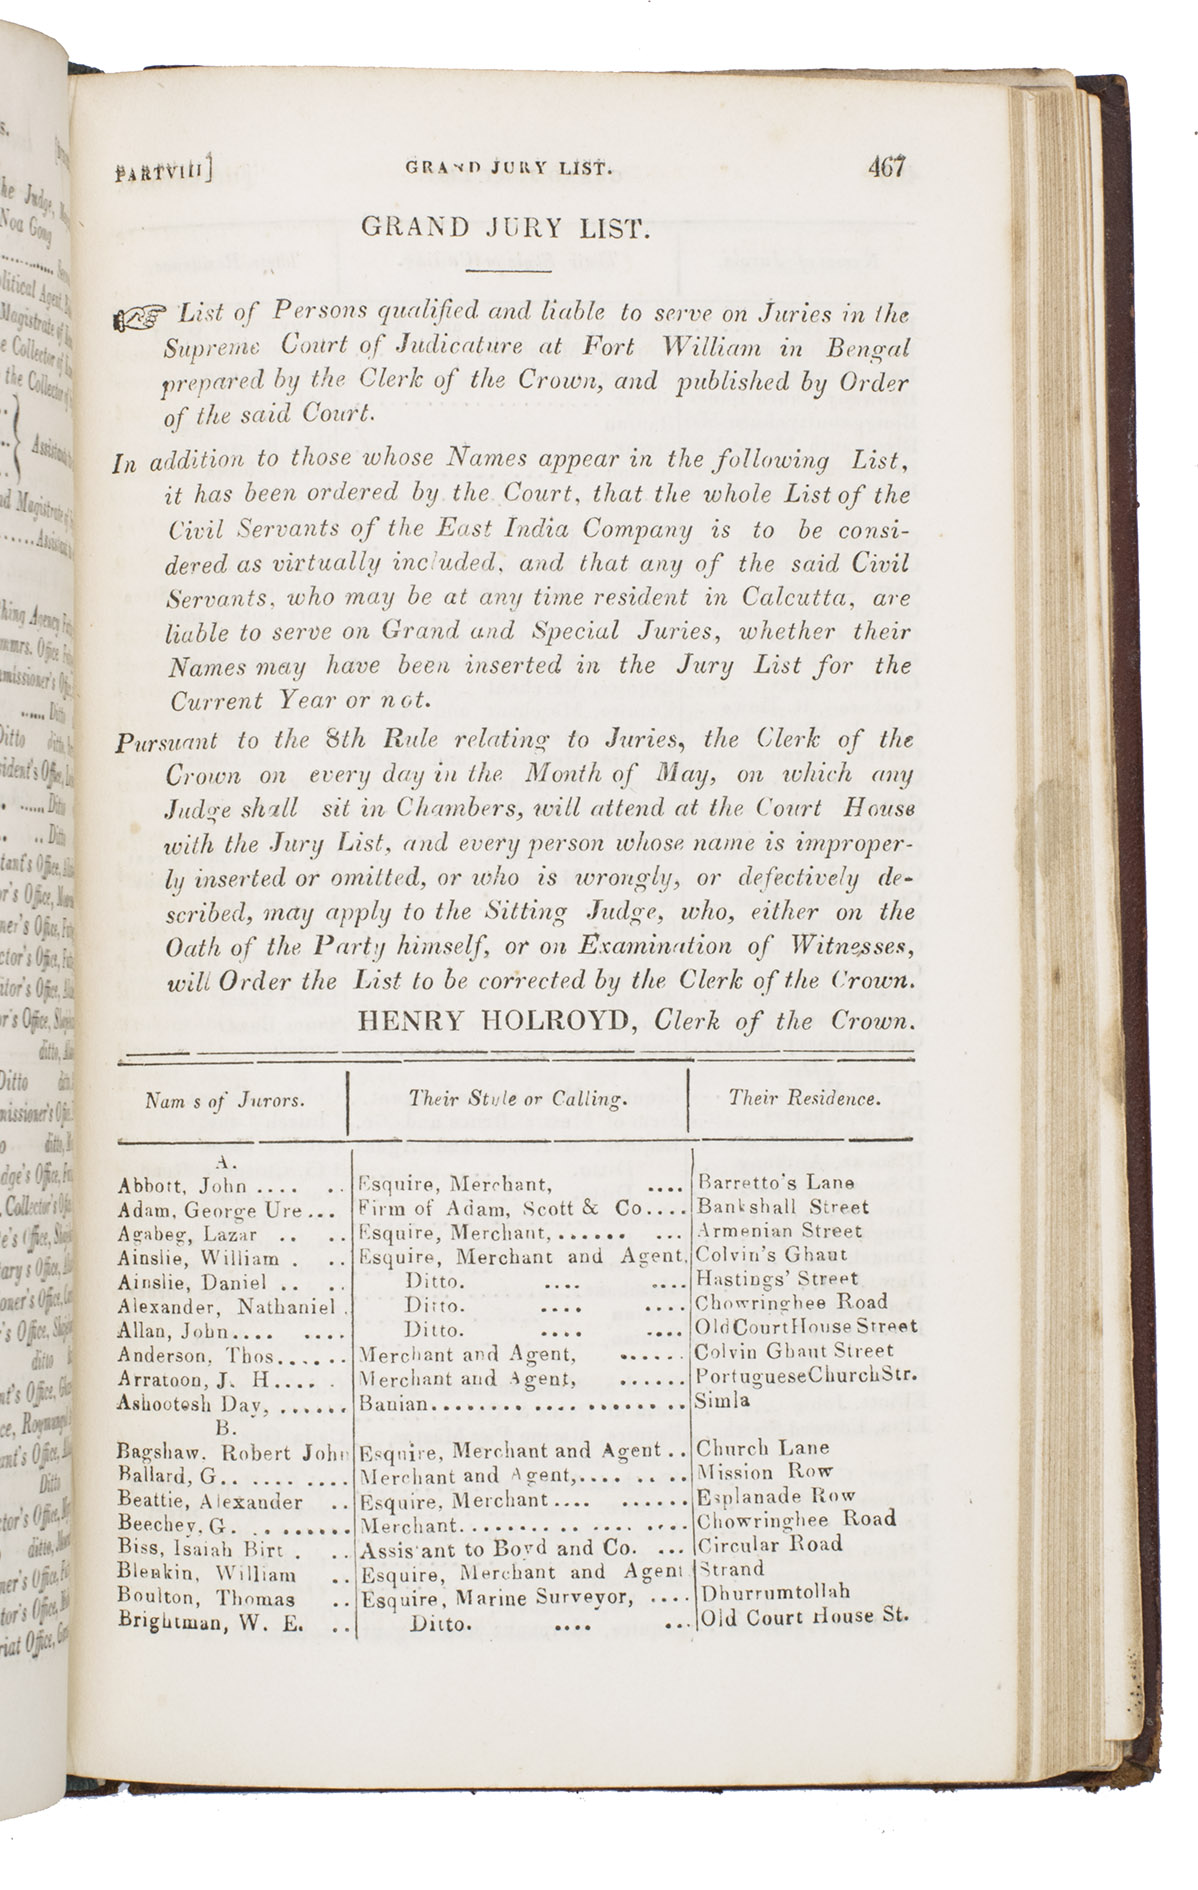 PARTVIII] GRAND JURY LIST. 467
GRAND JURY LIST.
☞ List of Persons qualified and liable to serve on Juries in the
Supreme Court of Judicature at Fort William in Bengal
prepared by the Clerk of the Crown, and published by Order
of the said Court.
In addition to those whose Names appear in the following List,
it has been ordered by the Court, that the whole List of the
Civil Servants of the East India Company is to be consi-
dered as virtually included, and that any of the said Civil
Servants, who may be at any time resident in Calcutta, are
liable to serve on Grand and Special Juries, whether their
Names may have been inserted in the Jury List for the
Current Year or not.
Pursuant to the 8th Rule relating to Juries, the Clerk of the
Crown on every day in the Month of May, on which any
Judge shall sit in Chambers, will attend at the Court House
with the Jury List, and every person whose name is improper-
ly inserted or omitted, or who is wrongly, or defectively de-
scribed, may apply to the Sitting Judge, who, either on the
Oath of the Party himself, or on Examination of Witnesses,
will Order the List to be corrected by the Clerk of the Crown.
HENRY HOLROYD, Clerk of the Crown.
Nam s of Jurors. Their Style or Calling. Their Residence.
A.
Abbott, John .... .. Esquire, Merchant, .... Barretto's Lane
Adam, George Ure... Firm of Adam, Scott & Co.... Bankshall Street
Agabeg, Lazar .. .. Esquire, Merchant,...... ... Armenian Street
Ainslie, William . .. Esquire, Merchant and Agent, Colvin's Ghaut
Ainslie, Daniel .. .. Ditto. .... .... Hastings' Street
Alexander, Nathaniel . Ditto. .... .... Chowringhee Road
Allan, John.... .... Ditto. .... .... Old Court House Street
Anderson, Thos...... Merchant and Agent, ...... Colvin Ghaut Street
Arratoon, J. H.... . Merchant and Agent, ...... Portuguese Church Str.
Ashootesh Day, ...... Banian........ .... ...... .. Simla
B.
Bagshaw, Robert John Esquire, Merchant and Agent .. Church Lane
Ballard, G.. ...... .... Merchant and Agent,.... .. .. Mission Row
Beattie, Alexander .. Esquire, Merchant.... ...... Esplanade Row
Beechey, G. . ....... Merchant........ .. .... .... Chowringhee Road
Biss, Isaiah Birt . .. Assis ant to Boyd and Co. ... Circular Road
Blenkin, William .. Esquire, Merchant and Agent Strand
Boulton, Thomas .. Esquire, Marine Surveyor, .... Dhurrumtollah
Brightman, W. E. .. Ditto. .... ... Old Court House St.